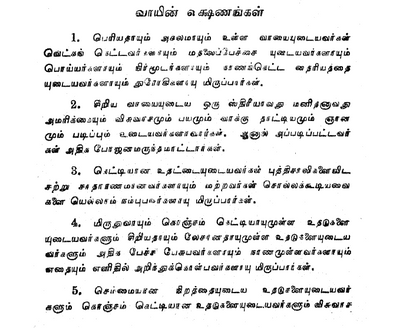 வாயின் லக்ஷணங்கள்
1. பெரியதாயும் அகலமாயும் உள்ள வாயையுடையவர்கள்
வெட்கங் கெட்டவர்களாயும் மதலைப்பேச்சை யுடையவர்களாயும்
பொய்யர்களாயும் நிர்மூடர்களாயும் காணங்கெட்ட தைரியத்தை
யுடையவர்களாயும் துரோகிகளாயு மிருப்பார்கள்.
2. சிறிய வாயையுடைய ஒரு ஸ்திரீயாவது மனிதனாவது
அமரிக்கையும் விசுவாசமும் பயமும் வாக்கு நாட்டியமும் ஞான
மும் படிப்பும் உடையவர்களாவார்கள். ஆனால் அப்படிப்பட்டவர்
கள் அதிக போஜனமருந்தமாட்டார்கள்.
3. கெட்டியான உதட்டையுடையவர்கள் புத்திசாலிகளைவிட
சற்று சாதாரணமானவர்களாயும் மற்றவர்கள் சொல்லக்கூடியவை
களை யெல்லாம் நம்புபவர்களாயு மிருப்பார்கள்.
4. மிருதுவாயும் கொஞ்சம் கெட்டியாயுமுள்ள உதடுகளை
யுடையவர்களும் சிறியதாயும் லேசானதாயுமுள்ள உதடுகளையுடைய
வர்களும் அதிக பேச்சு பேசுபவர்களாயும் காணமுள்ளவர்களாயும்
எதையும் எளிதில் அறிந்துக்கொள்பவர்களாயு மிருப்பார்கள்.
5. செம்மையான நிறத்தையுடைய உதடுகளையுடையவர்
களும் கொஞ்சம் கெட்டியான உதடுகளையுடையவர்களும் விசுவாச